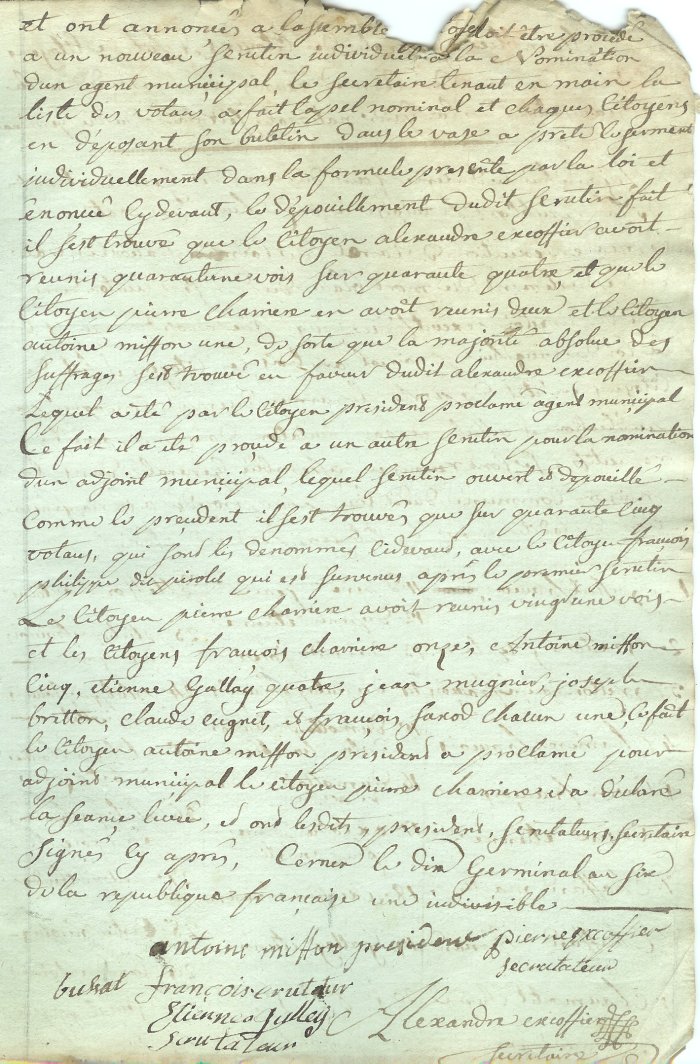 et ont annoncés a lasemblé doit être procédé
a un nouveau Serutin individuel a la Nomination
dun agent municipal, le secretaire tenant en main la
liste des votans a fait lapel nominal et chaques Citoyens
en déposant son buletin dans le vase a prete le serment
individuellement dans la formule presente par la loi et
énoncée Cydevant, le dépouillement dudit Serutin fait
il sest trouvé que le Citoyen alexandre excoffier avoit
reunis quarantune vois sur quarante quatre et que le
Citoyen pierre Charriere en avoit reunis deux et le Citoyen
antoine miffon une, de sorte que la majorité absolue des
suffrages sest trouvé en faveur dudit alexandre excoffier
Lequel a été par le Citoyen president proclamé agent municipal
Ce fait il a été procédé a un autre serutin pour la nomination
dun adjoint municipal, lequel serutin ouvert et dépouillé
Comme le precedent il sest trouvés que sur quarante Cinq
votans, qui sont les dénommés Cidevand, avec le Citoyen françois
philippe dit pirolet qui est survenus après le premier serutin
Le Citoyen pierre Charriere avoit reunis vingtune vois
et les Citoyens françois Charriere onze, Antoine miffon
Cinq, etienne Gallay quatre, jean mugnier, joseph
britton, Claude Cugnet, et françois Sarod Chacun une, Ce fait
le Citoyen antoine miffon president a proclamé pour
adjoind municipal le Citoyen pierre Charriere et a déclaré
la seance levée, et ond lesdits president, serutateurs, secretaire
signés Cy après, Cernex le dix Germinal an six
de la republique française une indivisible
antoine miffon president pierre excoffier
secrutateur
buhat françois crutateur
Etienne Gulley
scrutateur
Alexandre excoffier
secretaire